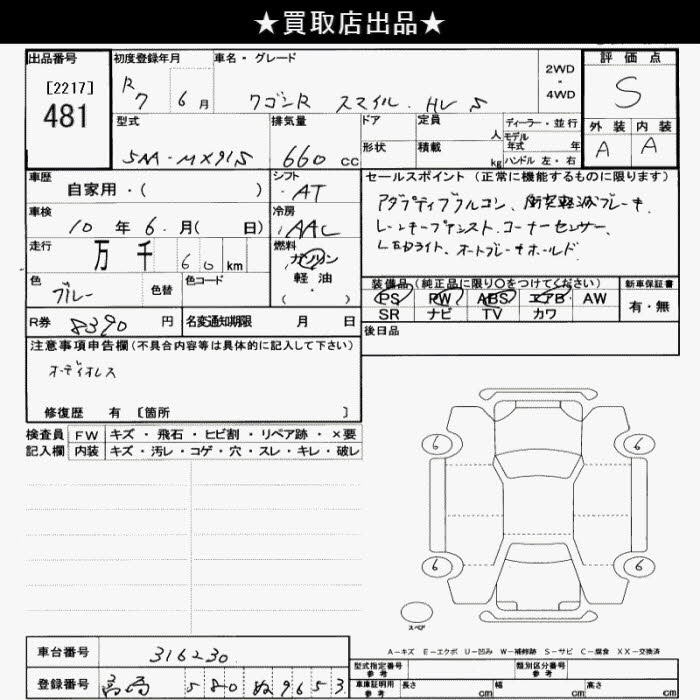 ★買取店出品★
出品番号 初度登録年月 車名・グレード 評価点
[2217]
481
R7 6月 ワゴンR スマイル・HV S 2WD・4WD S
型式 排気量 ドア 定員 人 ディーラー・並行 外装 内装
5AA-MX91S 660 cc 形状 積載 kg モデル年式 年 ハンドル 左・右 A A
車歴 シフト セールスポイント（正常に機能するものに限ります）
自家用・（ ） AT アダプティブクルコン、衝突軽減ブレーキ
車検 冷房 レーンキープアシスト、コーナーセンサー、
10年 6月（ 日） AAC LEDライト、オートブレーキホールド
走行 燃料
万 千 60 km ガソリン
軽油
（ ）
色 色替 色コード 装備品（純正品に限り○をつけてください） 新車保証書
ブルー PS PW ABS エアB AW 有・無
SR ナビ TV カワ
R券 8390 円 名変通知期限 月 日 後日品
注意事項申告欄（不具合内容等は具体的に記入して下さい）
オーディオレス
修復歴 有 〔箇所 〕
検査員 FW キズ・飛石・ヒビ割・リペア跡・×要
記入欄 内装 キズ・汚レ・コゲ・穴・スレ・キレ・破レ
6 6
6 6
スペア
A－キズ E－エクボ U－凹み W－補修跡 S－サビ C－腐食 XX－交換済
車台番号 316230
登録番号 580 ぬ 9653
型式指定番号 参考 類別区分番号 参考
車庫証明用 参考 長さ cm 幅 cm 高さ cm